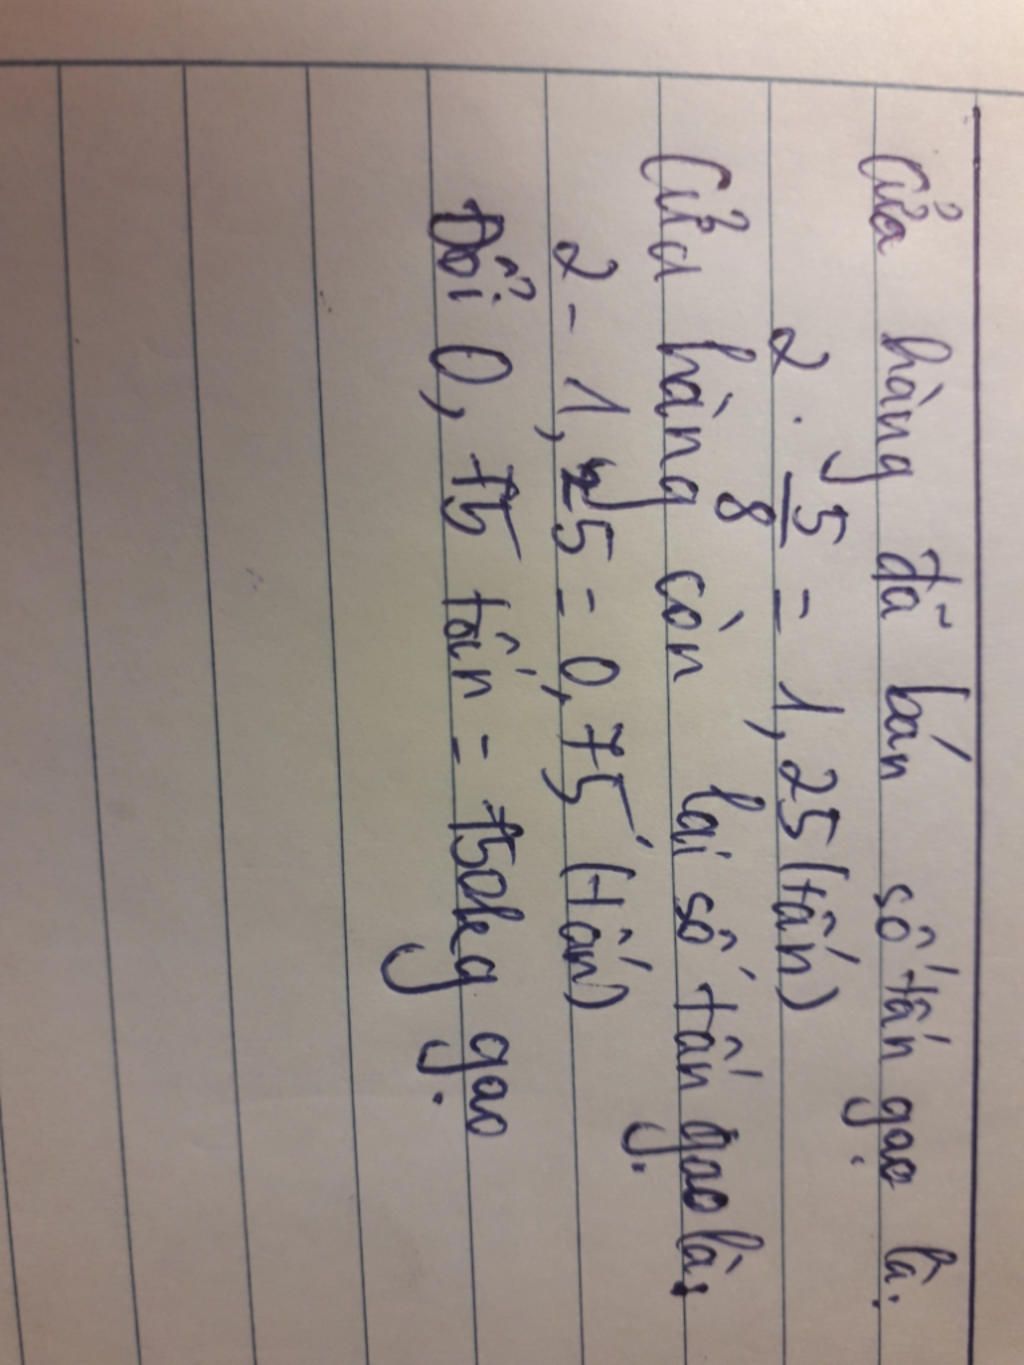 Cửa hàng đã bán số tấn gạo là:
2 . 5/8 = 1,25 (tấn)
Cửa hàng còn lại số tấn gạo là:
2 - 1,25 = 0,75 (tấn)
Đổi 0,75 tấn = 750kg gạo